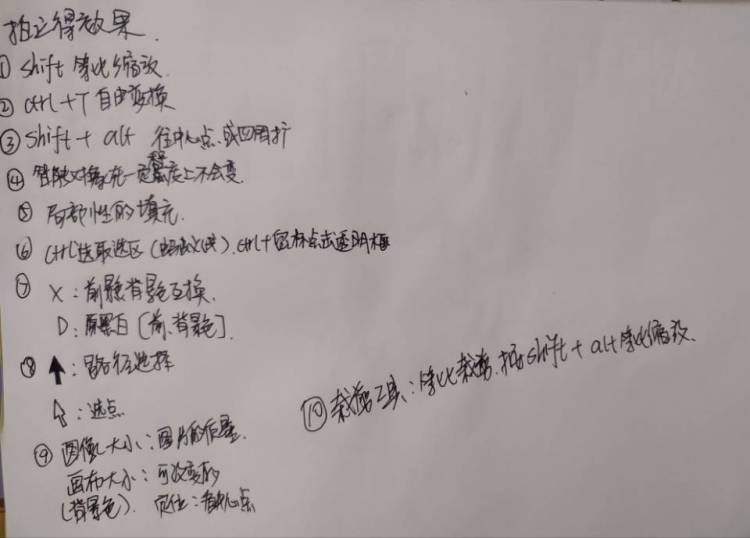 拍立得效果
① shift 等比缩放.
② ctrl+T 自由变换
③ shift + alt 往中心点.或四周扩
④ 智能对象在一定程度上不会变.
⑤ 局部性的填充.
⑥ ctrl选取选区(蚂蚁线).ctrl+鼠标点击透明框
⑦ X:前景背景互换.
D:黑白[前.背景色].
⑧ :路径选择
:选点
⑨ 图像大小:图片的质量.
画布大小:可改变的
(背景色). 定位:中心点
⑩ 裁剪工具:等比裁剪.按shift + alt等比缩放.